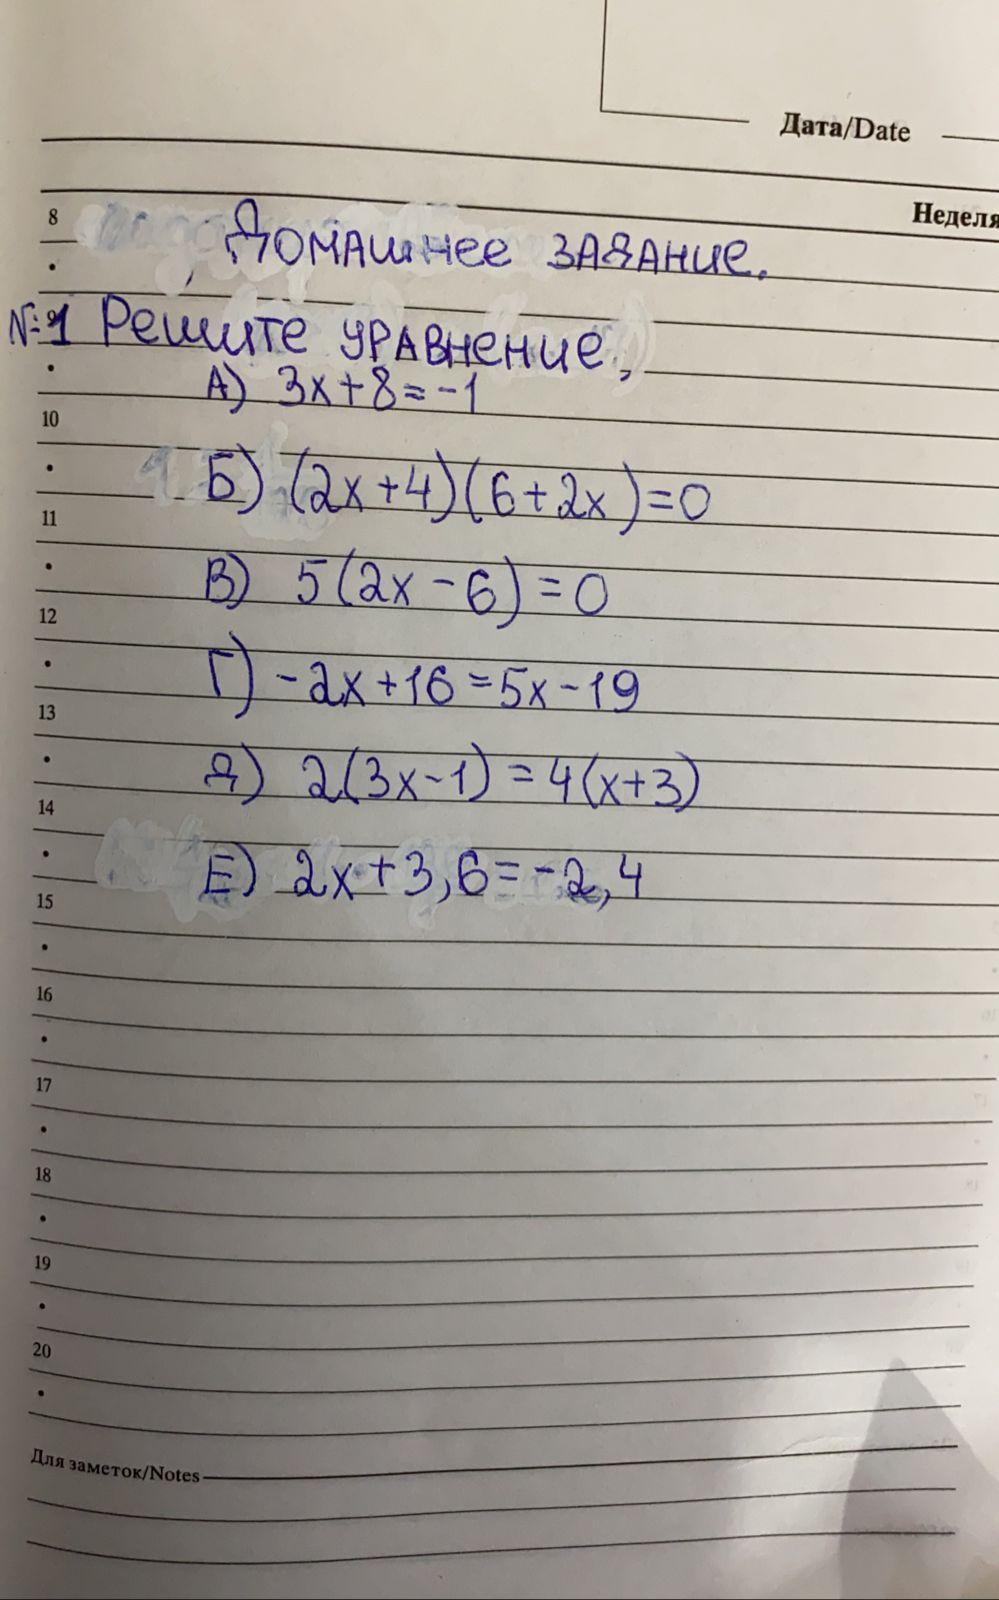 Дата/Date
Неделя
8
Домашнее задание.
№1 Решите уравнение,
9
А) 3x+8=-1
10
Б) (2x+4)(6+2x)=0
11
В) 5(2x-6)=0
12
Г) -2x+16=5x-19
13
Д) 2(3x-1)=4(x+3)
14
Е) 2x+3,6=-2,4
15
16
17
18
19
20
Для заметок/Notes